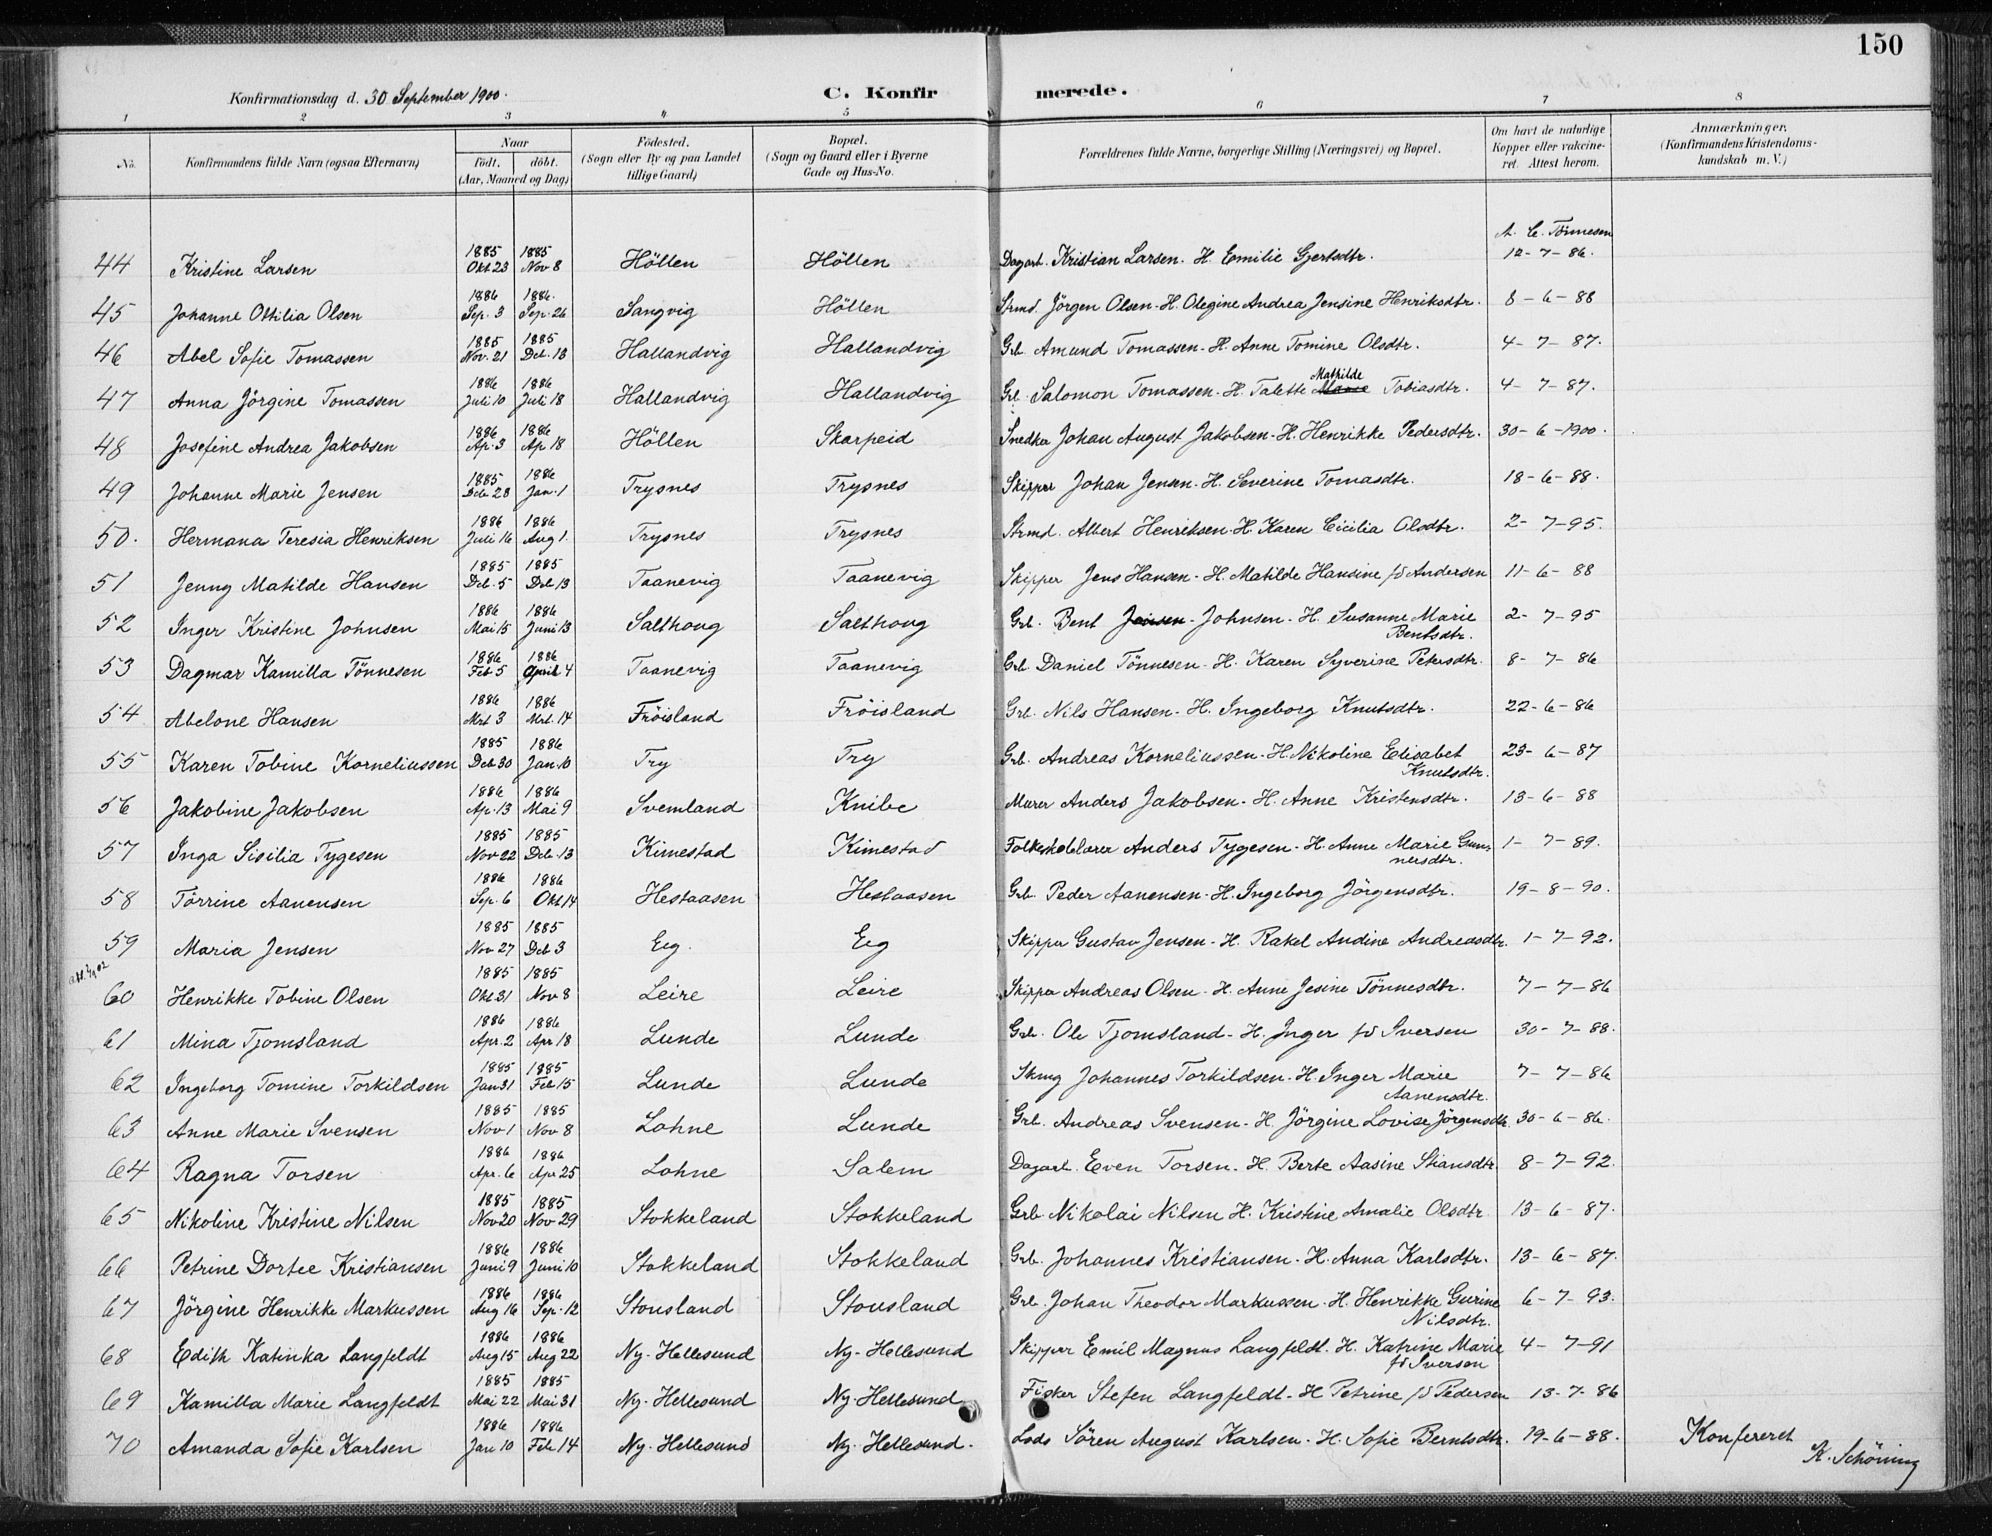 150
Konfirmationsdag d. 30 September 1900.
C. Konfirmerede.
1 2 3 4 5 6 7 8
No. Konfirmandens fulde Navn (ogsaa Efternavn) Naar födt. döbt. (Aar, Maaned og Dag) Födested. (Sogn eller By og paa Landet tillige Gaard) Bopæl. (Sogn og Gaard eller i Byerne Gade og Hus-No. Forældrenes fulde Navne, borgerlige Stilling (Næringsvei) og Bopæl. Om havt de naturlige Kopper eller vakcineret. Attest herom. Anmærkninger. (Konfirmandens Kristendomskundskab m. V.)
A. C. Tönnesen
44 Kristine Larsen 1885 Okt 23 1885 Nov 8 Höllen Höllen Dagarb. Kristian Larsen. H. Emilie Gjertsdtr. 12-7-86.
45 Johanne Othilia Olsen 1886 Sep. 3 1886. Sep. 26 Sangvig Höllen Strmd. Jörgen Olsen. H. Olegine Andrea Jensine Henriksdtr. 8-6-88
46 Abel Sofie Tomassen 1885 Nov. 21 1885 Dec. 13 Hallandvig Hallandvig Grb. Amund Tomassen. H. Anne Tomine Olsdtr. 4-7-87.
47 Anna Jörgine Tomassen 1886 Juli 10 1886 Juli 18 Hallandvig Hallandvig Grb. Salomon Tomassen. H. Talette Mathilde Tobiasdtr. 4-7-87.
48 Josefine Andrea Jakobsen 1886 Ap. 3 1886 Ap 18 Höllen Skarpeid Snedker Johan August Jakobsen. H. Henrikke Pedersdtr. 30-6-1900.
49 Johanne Marie Jensen 1885 Dec 28 1886 Jan. 1 Trysnes Trysnes Skipper Johan Jensen. H. Severine Tomasdtr. 18-6-88.
50. Hermana Teresia Henriksen 1886 Juli 16 1886 Aug 1. Trysnes Trysnes Strmd. Albert Henriksen. H. Karen Cicilia Olsdtr. 2-7-95.
51 Jenny Matilde Hansen 1885 Dec. 5 1885 Dec 13 Taanevig Taanevig Skipper Jens Hansen. H. Matilde Hansine fd Andersen 11-6-88
52 Inger Kristine Johnsen 1886 Mai 15 1886 Juni 13 Salthoug Salthoug Grb. Bent Jensen Johnsen. H. Susanne Marie Bentsdtr. 2-7-95
53 Dagmar Kamilla Tönnesen 1886 Feb 5 1886 April 4 Taanevig Taanevig Grb. Daniel Tönnesen. H. Karen Syverine Petersdtr. 8-7-86
54 Abelone Hansen 1886 Mrt 3 1886 Mrt. 14 Fröisland Fröisland Grb. Nils Hansen. H. Ingeborg Knutsdtr. 22-6-86
55 Karen Tobine Korneliussen 1885 Dec 30 1886 Jan. 10 Try Try Grb. Andreas Korneliussen. H. Nikoline Elisabet Knutsdtr. 23-6-87
56 Jakobine Jakobsen 1886 Ap. 13 1886 Mai 9 Svemland Knibe Murer Anders Jakobsen. H. Anne Kristensdtr. 13-6-88
57 Inga Sisilia Tygesen 1885 Nov 22 1885 Dec. 13 Kimestad Kimestad Folkeskolelærer Anders Tygesen. H. Anne Marie Gunnersdtr. 1-7-89.
58 Törrine Aanensen 1886 Sep. 6 1886 Okt 14 Hestaasen Hestaasen Grb. Peder Aanensen. H. Ingeborg Jörgensdtr. 19-8-90.
59 Maria Jensen 1885 Nov 27 1885 Dec 3 Eeg. Eeg Skipper Gustav Jensen. H. Rakel Andine Andreasdtr. 1-7-92.
60 Henrikke Tobine Olsen 1885 Okt 31 1885 Nov 8 Leire Leire Skipper Andreas Olsen. H. Anne Jesine Tönnesdtr. 7-7-86
61 Mina Tjomsland 1886 Apr. 2 1886 Apr 18 Lunde Lunde Grb. Ole Tjomsland. H. Inger fd Iversen 30-7-88.
62 Ingeborg Tomine Torkildsen 1885 Jan 31 1885 Feb 15 Lunde Lunde Johannes Torkildsen. H. Inger Marie Aanensdtr. 7-7-86
63 Anne Marie Svensen 1885 Nov 1 1885 Nov 8 Lohne Lunde Grb. Andreas Svensen. H. Jörgine Lovise Jörgensdtr. 30-6-86.
64 Ragna Torsen 1886 Apr. 6 1886 Apr 25 Lohne Salem Dagarb. Even Torsen. H. Berte Aasine Stiansdtr. 8-7-92.
65 Nikoline Kristine Nilsen 1885 Nov 20 1885 Nov 29 Stokkeland Stokkeland Grb. Nikolai Nilsen H. Kristine Amalie Olsdtr. 13-6-87.
66 Petrine Dortee Kristiansen 1886 Juni 9 1886 Juni 10 Stokkeland Stokkeland Grb. Johannes Kristiansen. H. Anna Karlsdtr. 13-6-87.
67 Jörgine Henrikke Markussen 1886 Aug 16 1886 Sep. 12 Stousland Stousland Grb. Johan Theodor Markussen. H. Henrikke Gurine Nilsdtr. 6-7-93.
68 Edith Katinka Langfeldt 1886 Aug 15 1886 Aug 22 Ny-Hellesund Ny-Hellesund Skipper Emil Magnus Langfeldt. H. Katrine Marie fd Iversen 4-7-91
69 Kamilla Marie Langfeldt 1885 Mai 22 1885 Mai 31 Ny-Hellesund Ny-Hellesund. Fisker Stefen Langfeldt. H Petrine fd Pedersen 13-7-86
70 Amanda Sofie Karlsen 1886 Jan 10 1886 Feb 14 Ny-Hellesund Ny-Hellesund. Lods Sören August Karlsen. H. Sofie Berntsdtr. 19-6-88. Konfereret
K. Schöning